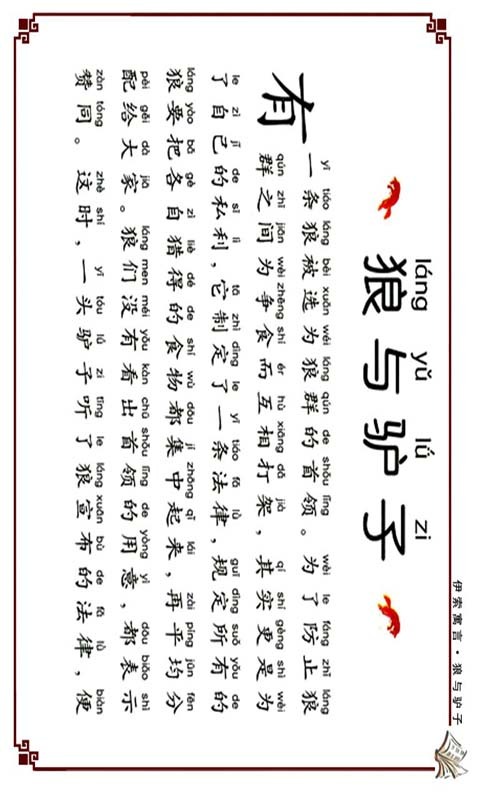 伊索寓言·狼与驴子
láng yǔ lǘ zi
狼与驴子
yī tiáo láng bèi xuǎn wéi láng qún de shǒu lǐng wèi le fáng zhǐ láng
有一条狼被选为狼群的首领。为了防止狼
qún zhī jiān wèi zhēng shí ér hù xiāng dǎ jià qí shí gèng shì wèi
群之间为争食而互相打架，其实更是为
le zì jǐ de sī lì tā zhì dìng le yī tiáo fǎ lǜ guī dìng suǒ yǒu de
了自己的私利，它制定了一条法律，规定所有的
láng yào bǎ gè zì liè dé de shí wù dōu jí zhōng qǐ lái zài píng jūn fēn
狼要把各自猎得的食物都集中起来，再平均分
pèi gěi dà jiā láng men méi yǒu kàn chū shǒu lǐng de yòng yì dōu biǎo shì
配给大家。狼们没有看出首领的用意，都表示
zàn tóng zhè shí yī tóu lǘ zi tīng le láng xuān bù de fǎ lǜ biàn
赞同。这时，一头驴子听了狼宣布的法律，便